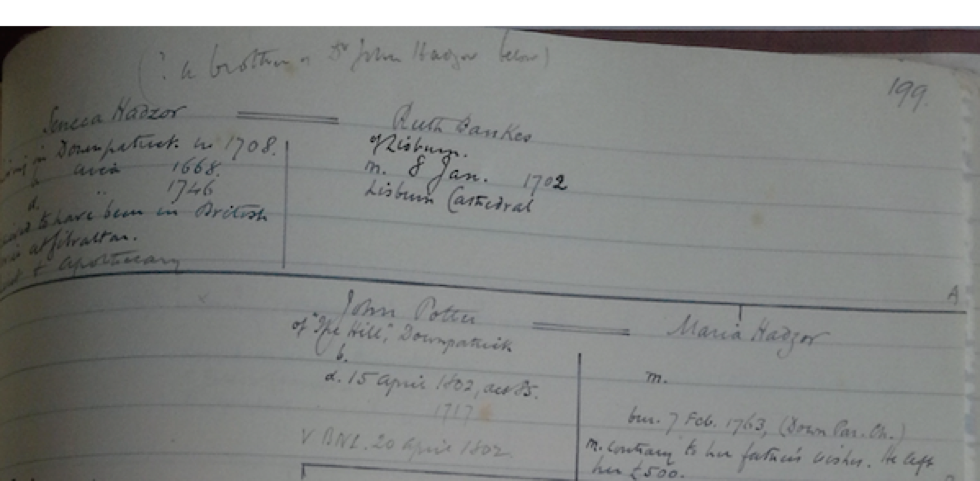 (? a brother of Dr John Hadzor below)
199.
Seneca Hadzor
in Downpatrick in 1708.
circa 1668.
d. " 1746
to have been in British
at Gibraltar.
+ Apothecary
Ruth Bankes
of Lisburn.
m. 8 Jan. 1702
Lisburn Cathedral
A
John Potter
of "The Hill", Downpatrick
b.
d. 15 April 1802, aet 85.
1717
v BNL. 20 April 1802.
Maria Hadzor
m.
bur. 7 Feb. 1763, (Down Par. Ch.)
m. contrary to her father's wishes. He left
her £500.